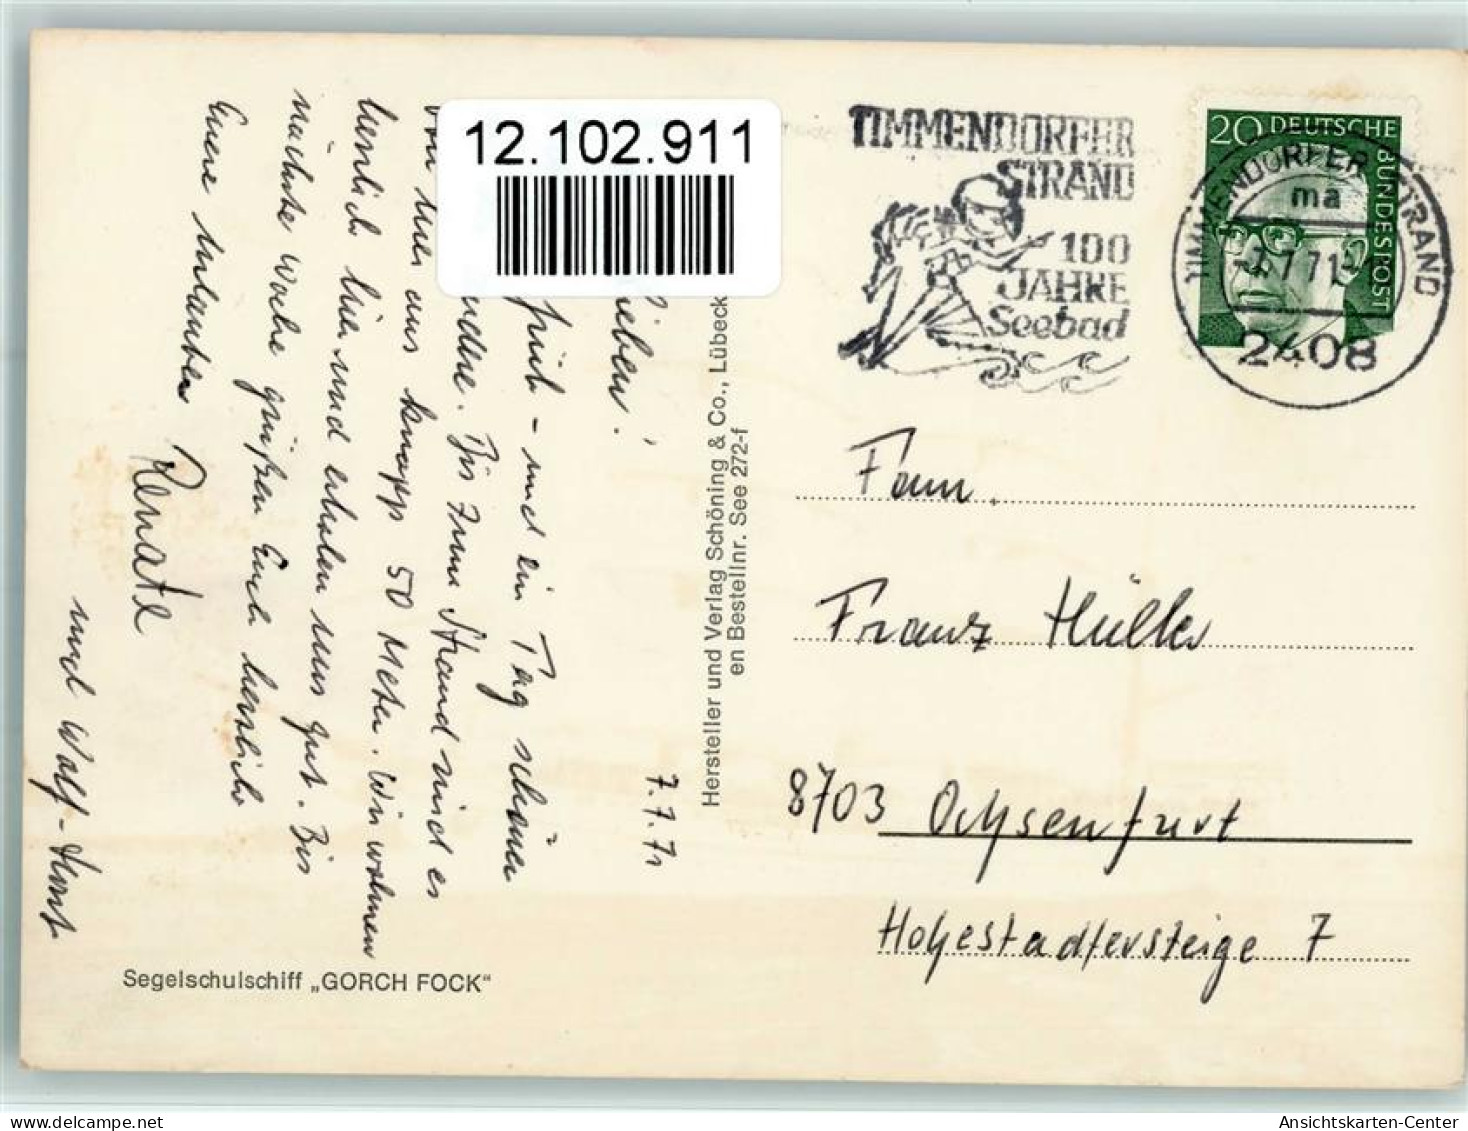 12.102.911
7.7.71
ieben!
früh - und ein Tag schöner
andere. Bis zum Strand sind es
von hier aus knapp 50 Meter. Wir wohnen
herrlich hier und erholen uns gut. Bis
nächste Woche grüßen Euch herzlich
Eure
Renate
und Wolf-Horst
Segelschulschiff „GORCH FOCK“
Hersteller und Verlag Schöning & Co., Lübeck
en Bestellnr. See 272-f
TIMMENDORFER
STRAND
100
JAHRE
Seebad
TIMMENDORFER STRAND
ma
-7.7.71
2408
20 DEUTSCHE
BUNDESPOST
Fam.
Franz
8703 Ochsenfurt
Hohestadtersteige 7
Ansichtskarten-Center